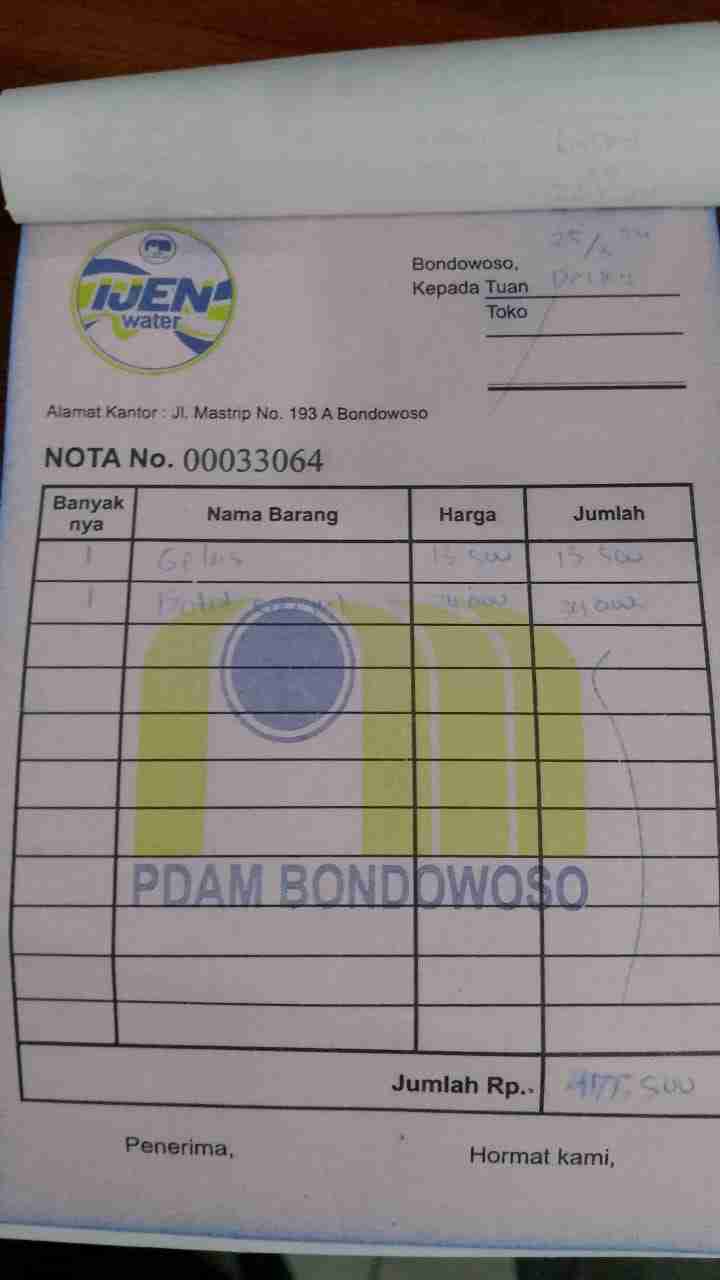 IJEN
water
Bondowoso,
Kepada Tuan
Toko
Alamat Kantor : Jl. Mastrip No. 193 A Bondowoso
NOTA No. 00033064
Banyak nya Nama Barang Harga Jumlah
1 Gelas 15 500 15 500
1 34.000
PDAM BONDOWOSO
Jumlah Rp.
Penerima,
Hormat kami,